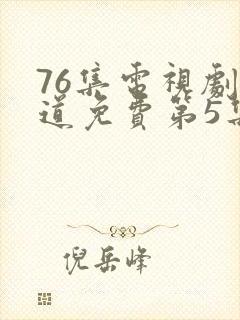 76集電視劇
道免費第5集
倪岳峰